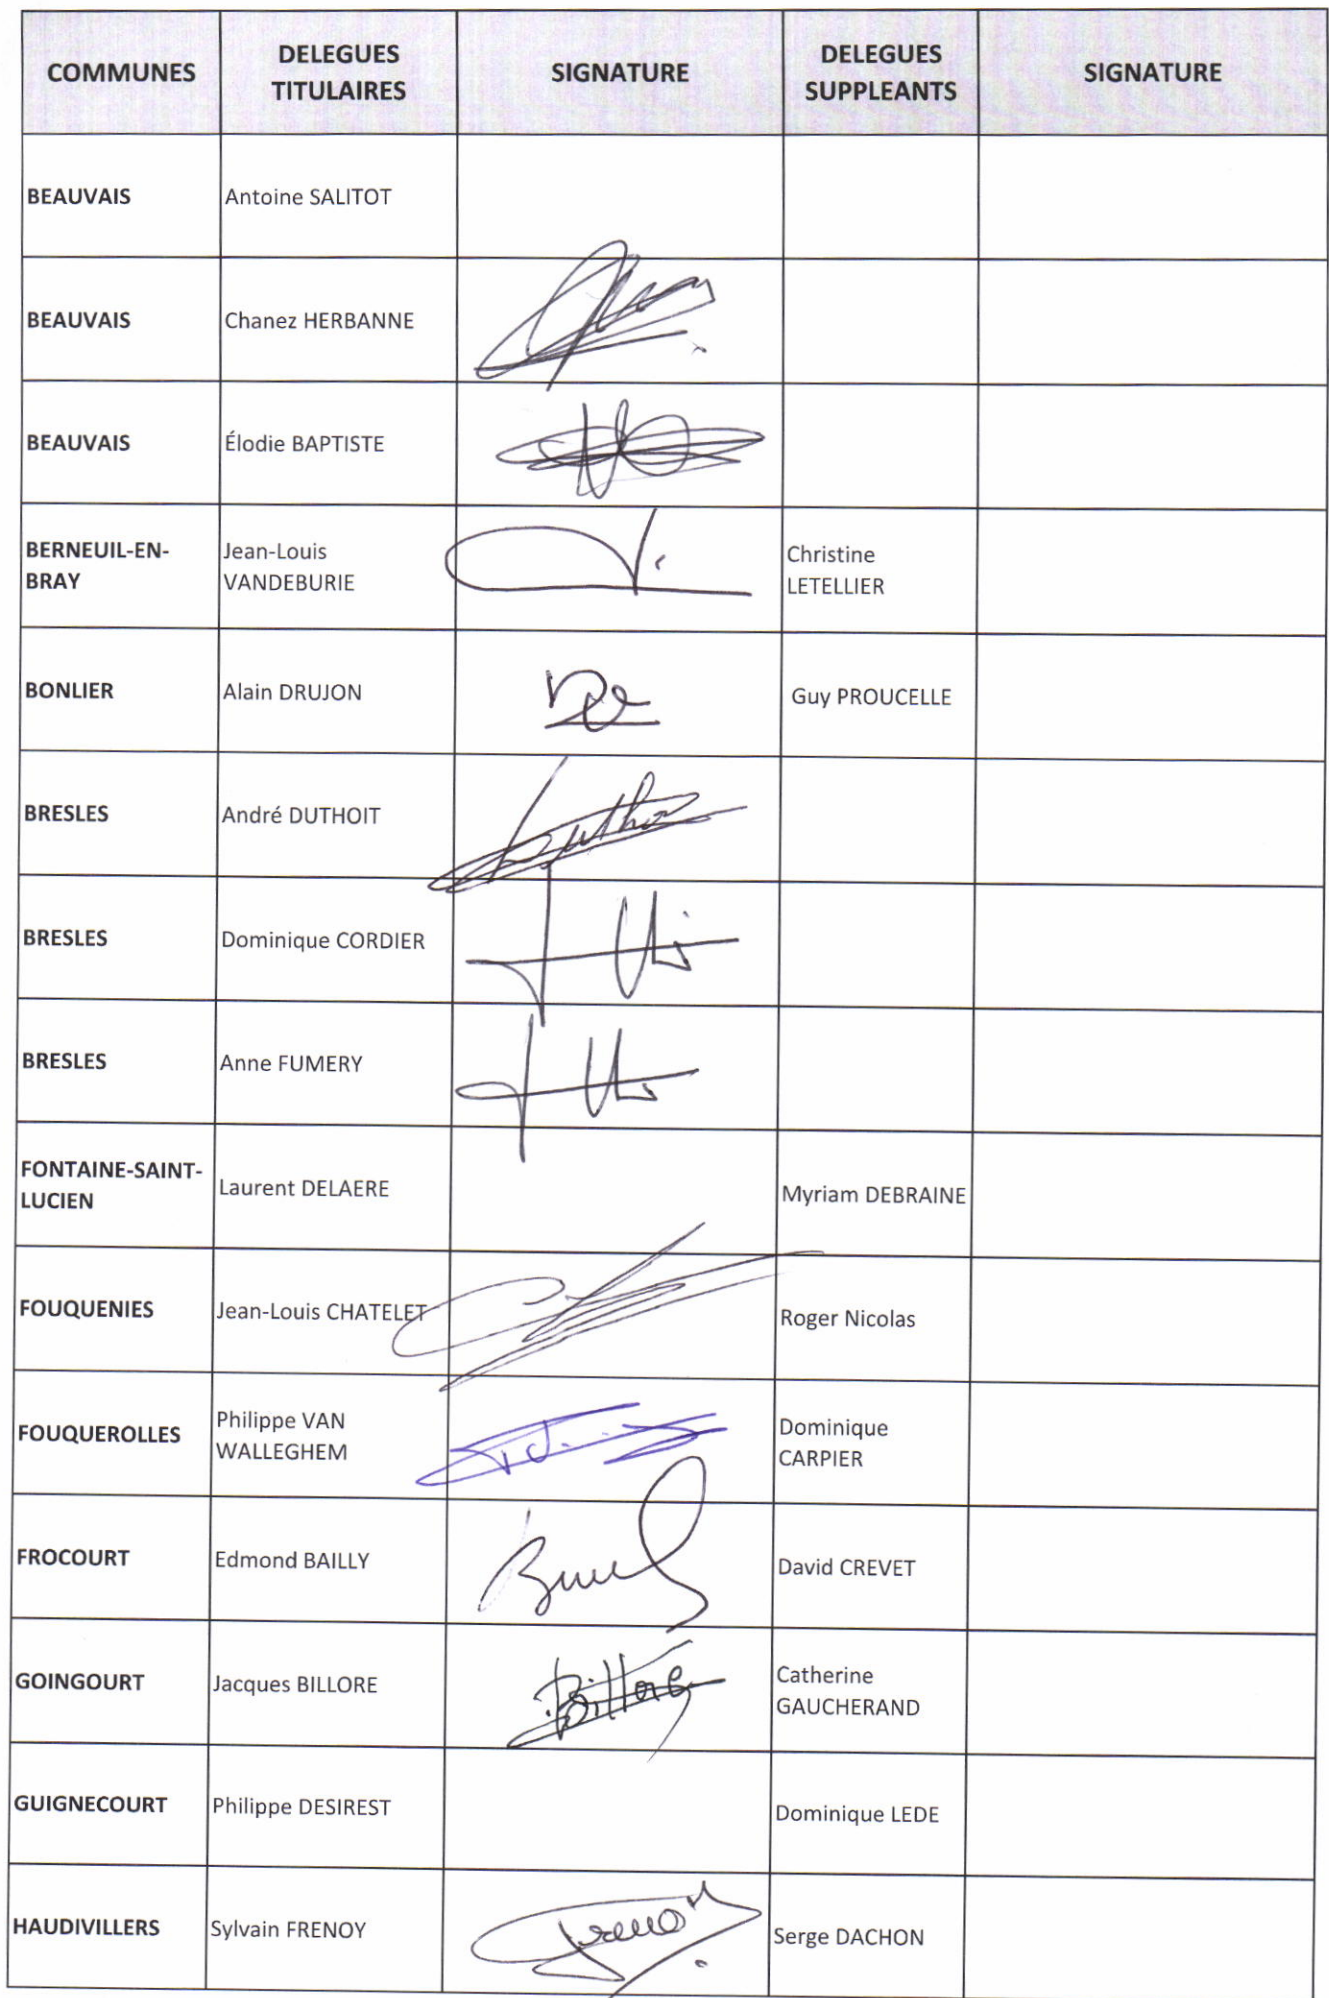 COMMUNES
DELEGUES
TITULAIRES
SIGNATURE
DELEGUES
SUPPLEANTS
SIGNATURE
BEAUVAIS
Antoine SALITOT
BEAUVAIS
Chanez HERBANNE
BEAUVAIS
Élodie BAPTISTE
BERNEUIL-EN-
BRAY
Jean-Louis
VANDEBURIE
Christine
LETELLIER
BONLIER
Alain DRUJON
Guy PROUCELLE
BRESLES
André DUTHOIT
BRESLES
Dominique CORDIER
BRESLES
Anne FUMERY
FONTAINE-SAINT-
LUCIEN
Laurent DELAERE
Myriam DEBRAINE
FOUQUENIES
Jean-Louis CHATELET
Roger Nicolas
FOUQUEROLLES
Philippe VAN
WALLEGHEM
Dominique
CARPIER
FROCOURT
Edmond BAILLY
David CREVET
GOINGOURT
Jacques BILLORE
Billoré
Catherine
GAUCHERAND
GUIGNECOURT
Philippe DESIREST
Dominique LEDE
HAUDIVILLERS
Sylvain FRENOY
Serge DACHON